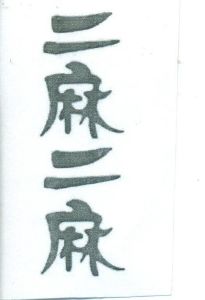 二麻二麻